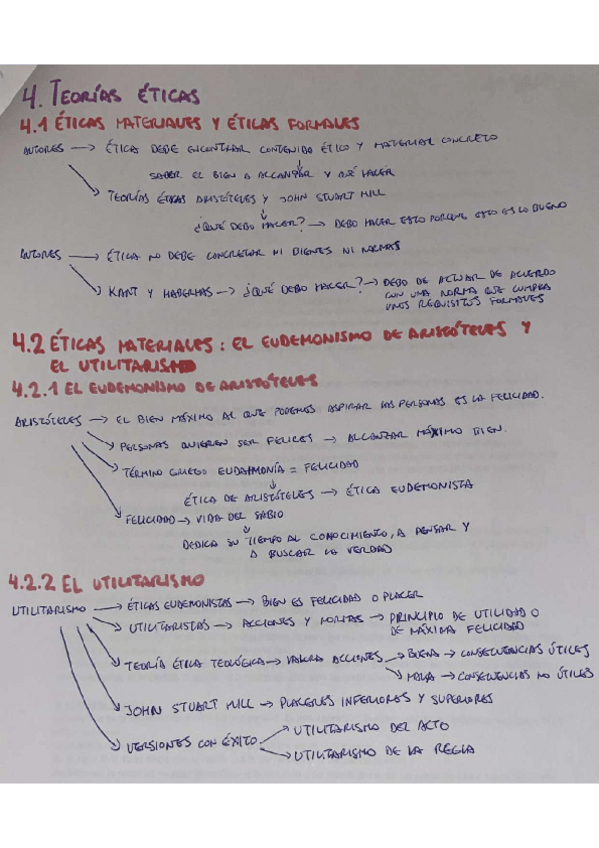 4. TEORÍAS ÉTICAS
4.1 ÉTICAS MATERIALES Y ÉTICAS FORMALES
AUTORES → ÉTICA DEBE ENCONTRAR CONTENIDO ÉTICO Y MATERIAL CONCRETO
SABER EL BIEN A ALCANZAR Y QUÉ HACER
TEORÍAS ÉTICAS ARISTÓTELES Y JOHN STUART MILL
¿QUÉ DEBO HACER? → DEBO HACER ESTO PORQUE ESTO ES LO BUENO
AUTORES → ÉTICA NO DEBE CONCRETAR NI BIENES NI NORMAS
KANT Y HABERMAS → ¿QUÉ DEBO HACER? → DEBO DE ACTUAR DE ACUERDO
CON UNA NORMA QUE CUMPLA
UNOS REQUISITOS FORMALES
4.2 ÉTICAS MATERIALES: EL EUDEMONISMO DE ARISTÓTELES Y
EL UTILITARISMO
4.2.1 EL EUDEMONISMO DE ARISTÓTELES
ARISTÓTELES → EL BIEN MÁXIMO AL QUE PODEMOS ASPIRAR LAS PERSONAS ES LA FELICIDAD.
PERSONAS QUIEREN SER FELICES → ALCANZAR MÁXIMO BIEN.
TÉRMINO GRIEGO EUDAIMONÍA = FELICIDAD
ÉTICA DE ARISTÓTELES → ÉTICA EUDEMONISTA
FELICIDAD → VIDA DEL SABIO
DEDICA SU TIEMPO AL CONOCIMIENTO, A PENSAR Y
A BUSCAR LA VERDAD
4.2.2 EL UTILITARISMO
UTILITARISMO → ÉTICAS EUDEMONISTAS → BIEN ES FELICIDAD O PLACER
UTILITARISTAS → ACCIONES Y NORMAS → PRINCIPIO DE UTILIDAD O
DE MÁXIMA FELICIDAD
TEORÍA ÉTICA TEOLÓGICA → VALORA ACCIONES → BUENA → CONSECUENCIAS ÚTILES
MALA → CONSECUENCIAS NO ÚTILES
JOHN STUART MILL → PLACERES INFERIORES Y SUPERIORES
VERSIONES CON ÉXITO → UTILITARISMO DEL ACTO
UTILITARISMO DE LA REGLA